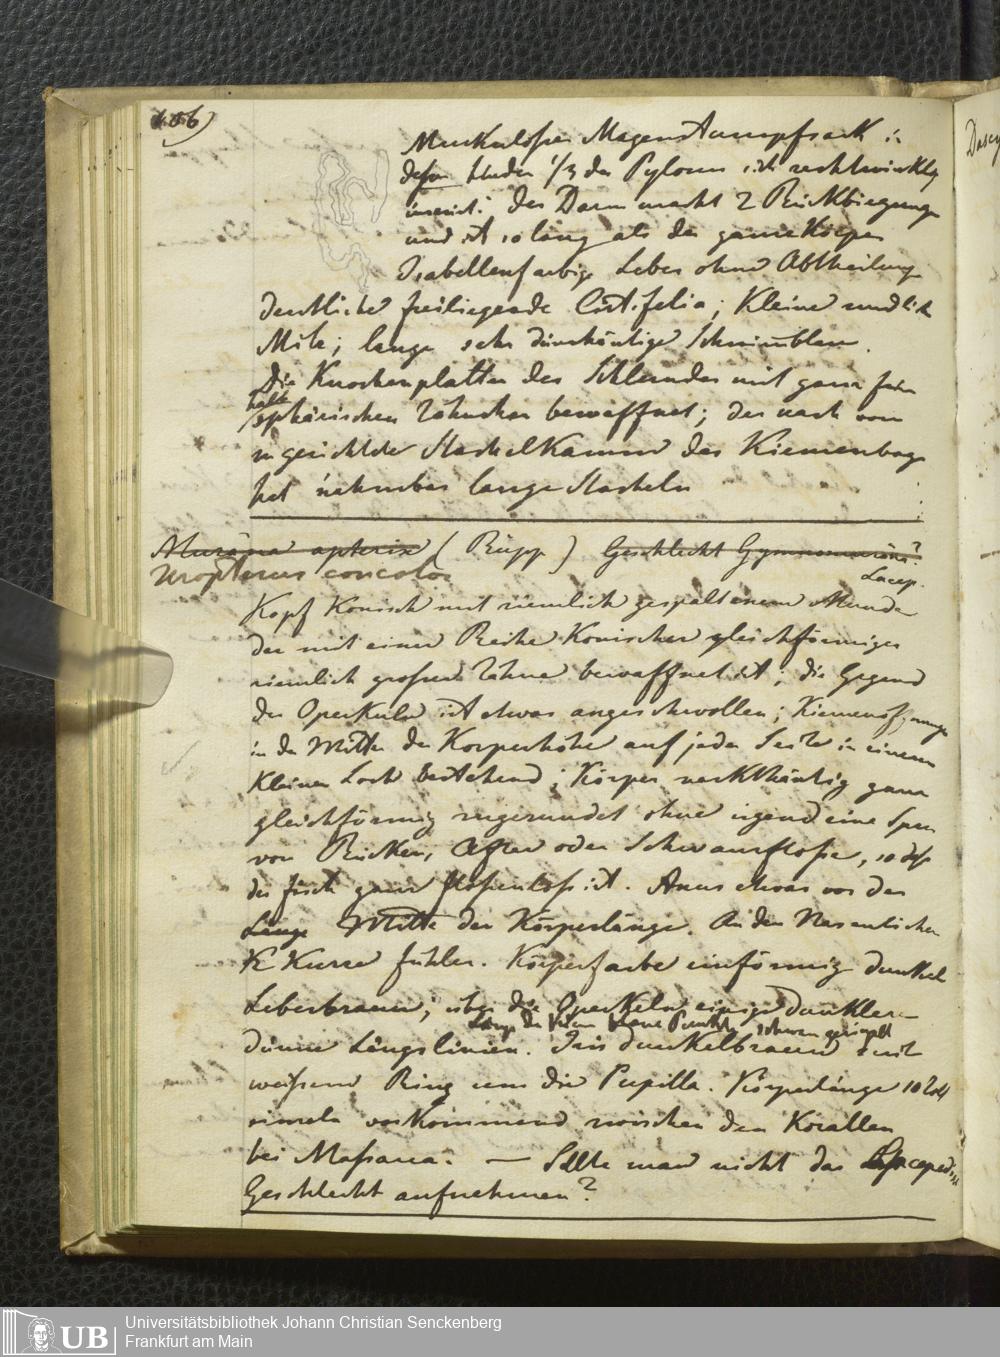 106)
Muskuloser Magen Stumpfsack in
dessen hinder 1/3 der Pylorus sich rechtwinklig
inserirt. Der Darm macht 2 Rückbiegungen
und ist so lang als der ganze Körper
Isabellenfarbige Leber ohne Abtheilung
deutliche freiliegende; Kleine rundlich
Milz; lange sehr dünnhäutige Schwimmblase.
Die Knochenplatten des Schlundes mit ganz fein
halb
sphärischen Zähnchen bewaffnet; der nach vorn
zu gerichtete Stachelkamm des Kiemenbogen
hat lange Stacheln
Muräna apterix (Rüpp) Geschlecht Gymnomuräna?
Lacep.
Uropterus concolor
Kopf Konisch mit ziemlich gespaltenem Munde
der mit einer Reihe Konischer gleichförmiger
ziemlich grosser Zähne bewaffnet ist; die Gegend
der Operkuln ist etwas angeschwollen; Kiemenöffnung
in der Mitte der Korperhöhe auf jeder Seite in einem
Kleinen Loch bestehend; Körper nackthäutig ganz
gleichförmig zugerundet ohne irgend eine Spur
von Rücken, After oder Schwanzflosse, so dass
der fisch ganz flossenlos ist. Anus etwas vor der
Länge Mitte der Körperlänge. An den Nasenlöchern
K Kurze fühler. Körperfarbe einförmig dunkel
Leberbraun; über die Operkeln einige dunklere
Längs der kleine Punkte schwarz
dünne Längslinien. Iris dunkelbraun mit
weissem Ring um die Pupilla. Körperlänge 10 Zoll
einzeln vorkommend zwischen den Korallen
bei Massaua. — Sollte man nicht das Lacepedisch
Geschlecht aufnehmen?
Dascy
UB
Universitätsbibliothek Johann Christian Senckenberg
Frankfurt am Main